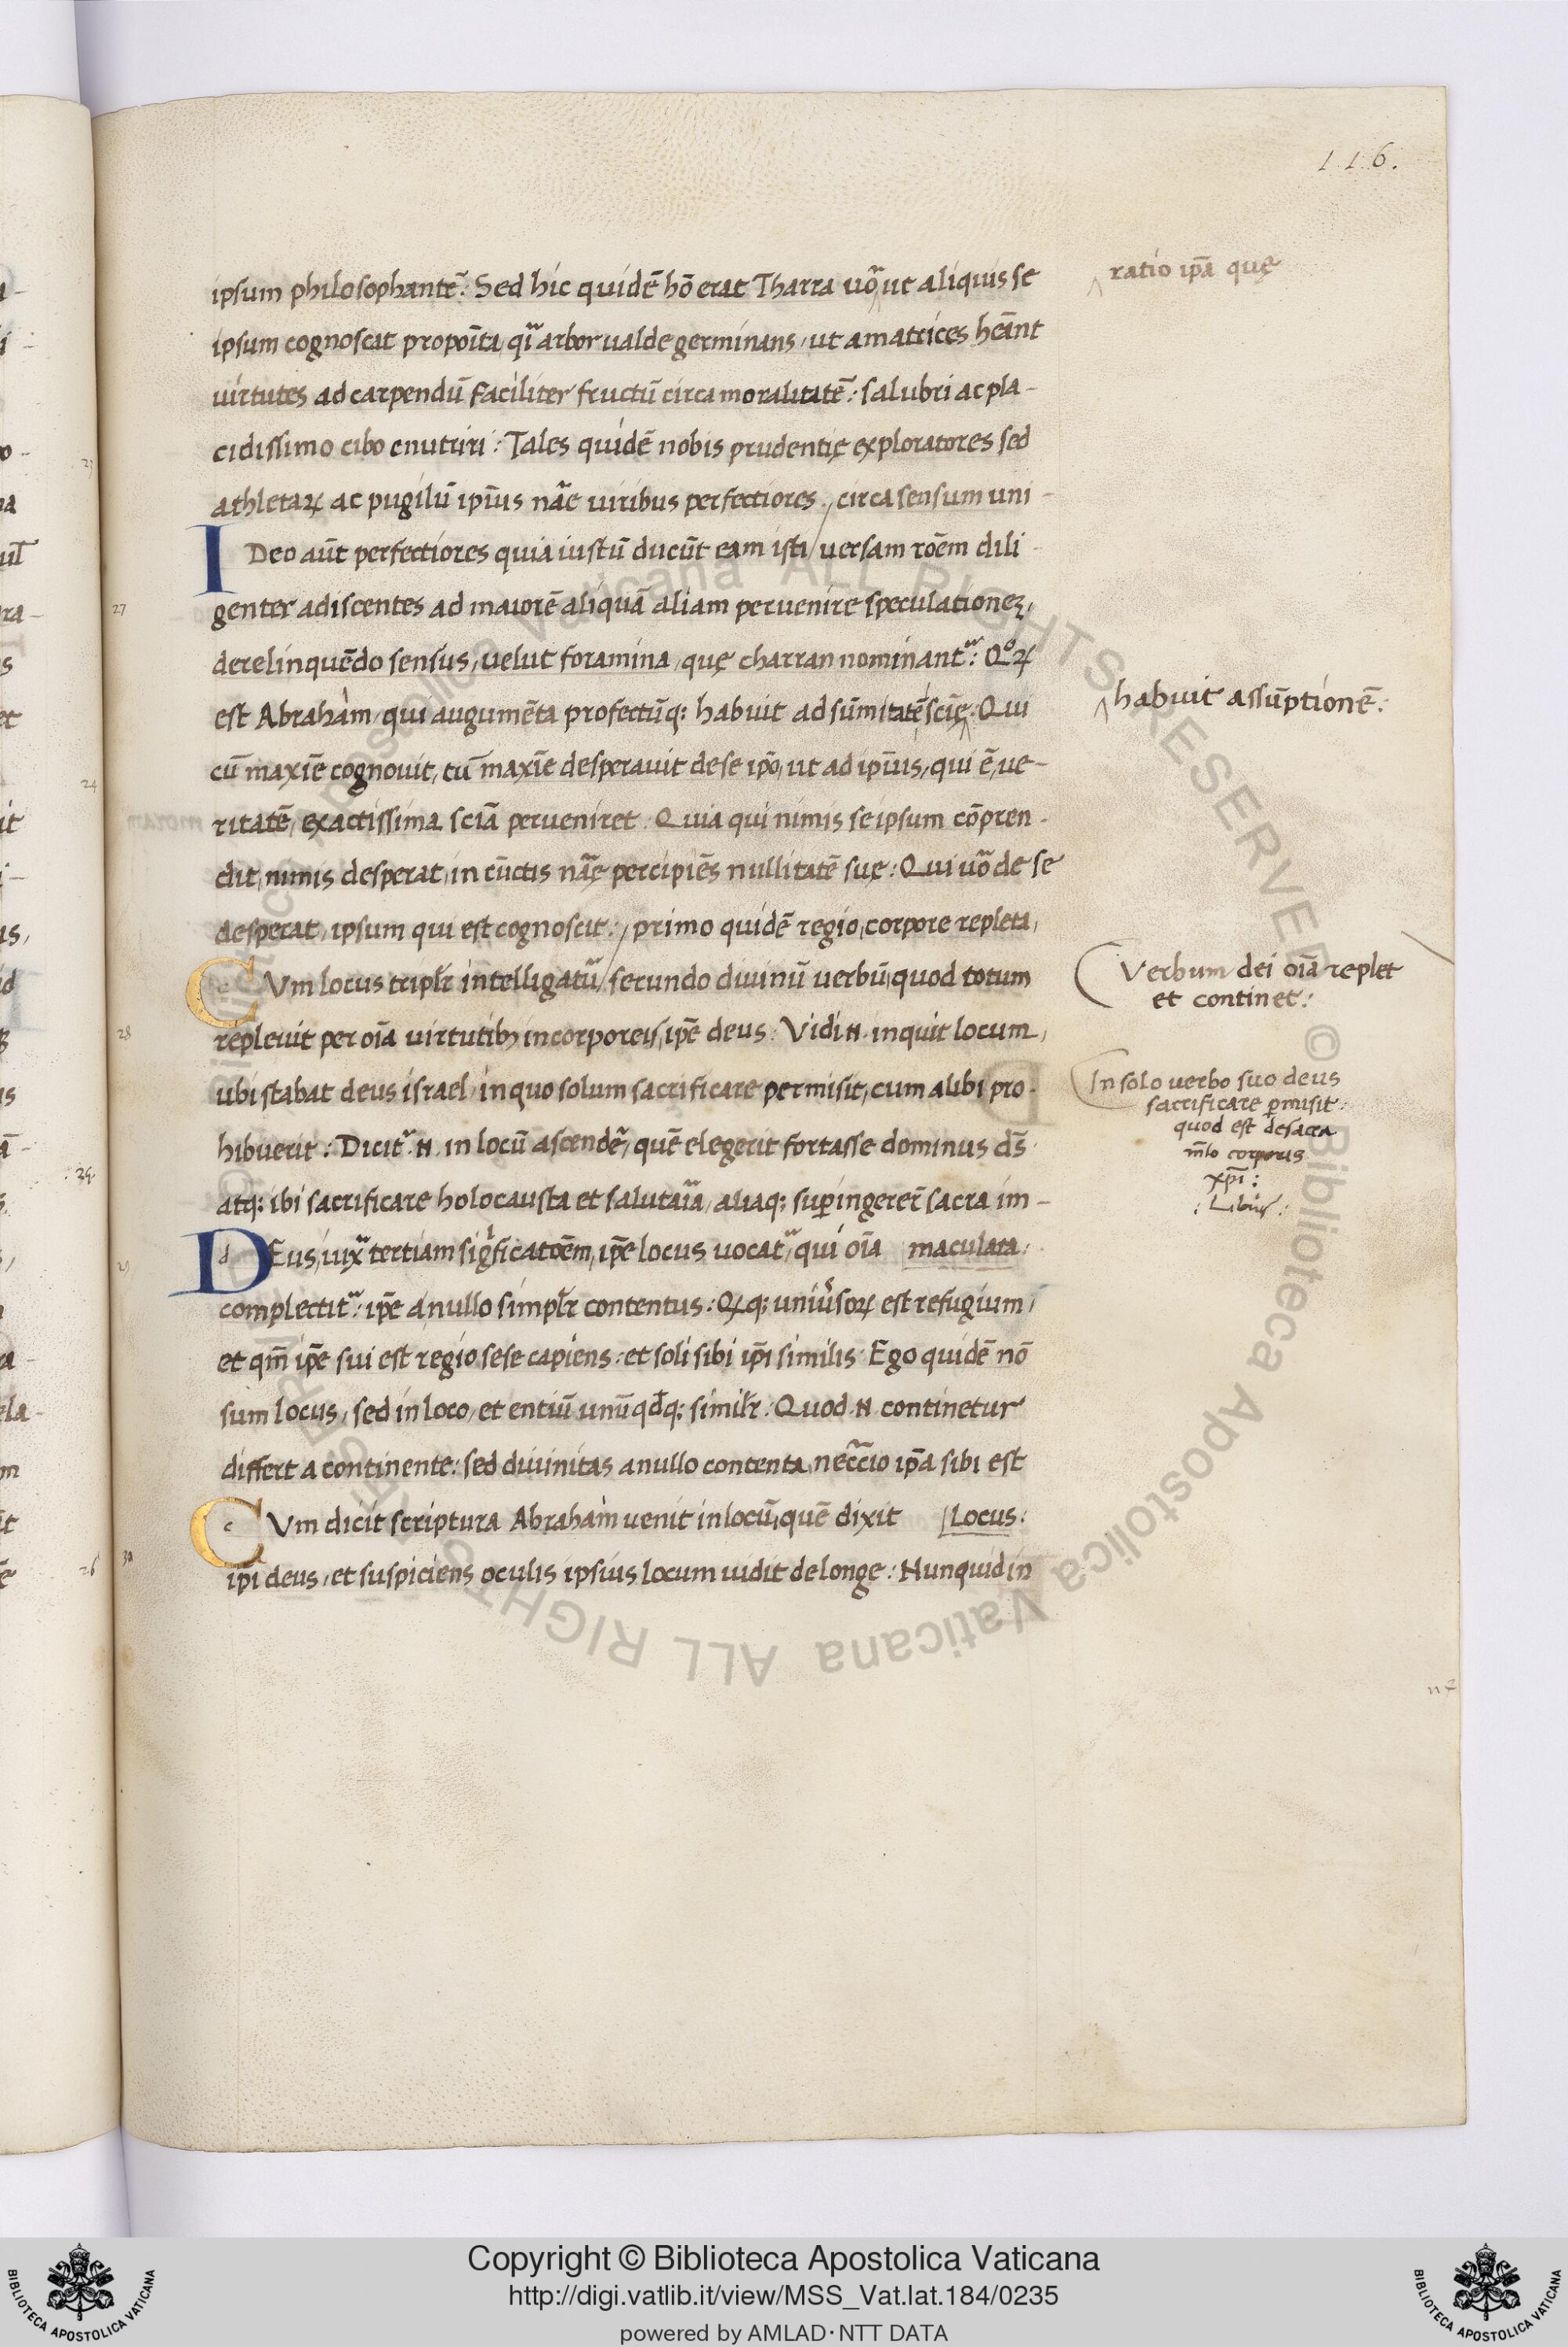 116.
ipsum philosophantē: Sed hic quidē hō erat Tharra uõ ut aliquis se
ratio ip̄a quę
ipsum cognoscat propoīta, qͣ arbor ualde germinans, ut amatrices heānt
uirtutes ad carpendū faciliter fructū circa moralitatē: salubri ac pla-
cidissimo cibo enutriri: Tales quidē nobis prudentię exploratores sed
athletaꝝ ac pugilū ip̄ius nāe uiribus perfectiores / circa sensum uni-
IDeo aūt perfectiores quia iustū ducūt eam isti / uersam rōem dili-
27
genter adiscentes ad maiorē aliquā aliam peruenire speculationeꝫ,
derelinquēdo sensus, uelut foramina, quę charran nominantᷣ: Qͦꝝ
est Abrahàm, qui augumēta profectūq; habuit ad sūmitatē sciē: Qui
habuit assūptionē:
cū maxīe cognouit, tū maxīe desperauit de se ip̄o, ut ad ip̄ius, qui ē, ue-
ritatē, exactissima sciā perueniret. Quia qui nimis se ipsum cōpren-
dit, nimis desperat, in cūctis nāę percipiēs nullitatē suę: Qui uõ de se
desperat, ipsum qui est cognoscit: / primo quidē regio, corpore repleta,
CVm locus triplr̄ intelligatᷣ / secundo diuinū uerbū, quod totum
Verbum dei oīa replet
et continet:
28
repleuit per oīa uirtutibꝫ incorporeis, ip̄e deus: Vidi .N. inquit locum,
ubi stabat deus israel, in quo solum sacrificare permisit, cum alibi pro-
In solo uerbo suo deus
sacrificare ꝑmisit:
quod est de sacra
m̄to corporis
xp̄i:
: Libius :
hibuerit: Dicitᷣ .N. in locū ascendē, quē elegerit fortasse dominus ds̄
atq; ibi sacrificare holocausta et salutaīa, aliaq; suꝑingerer̄ sacra im-
DEus, iuxͣ tertiam sigͥficatoēm, ip̄e locus uocatᷣ, qui oīa maculata:
29
complectitᷣ: ip̄e a nullo simplr̄ contentus: Qꝗ; uniuẽsoꝝ est refugium,
et qm̄ ip̄e sui est regio sese capiens: et soli sibi ip̄i similis. Ego quidē nō
sum locus, sed in loco, et entiū unūqđq; similr̄: Quod .N. continetur
differt a continente: sed diuinitas a nullo contenta, neccͣio ip̄a sibi est
CVm dicit scriptura Abrahàm uenit in locū, quē dixit Locus:
30
ip̄i deus, et suspiciens oculis ipsius locum uidit de longe: Nunquid in
Copyright © Biblioteca Apostolica Vaticana
http://digi.vatlib.it/view/MSS_Vat.lat.184/0235
powered by AMLAD·NTT DATA
BIBLIOTECA APOSTOLICA VATICANA
BIBLIOTECA APOSTOLICA VATICANA